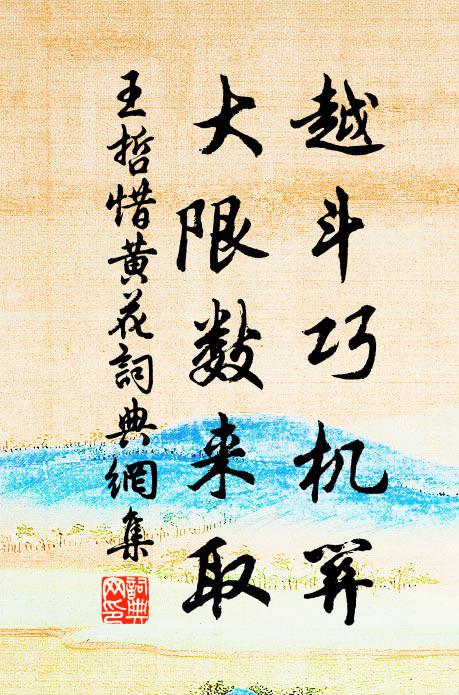 越斗巧机
大限数来取
王哲惜黄花詞典網集
詞典
网印